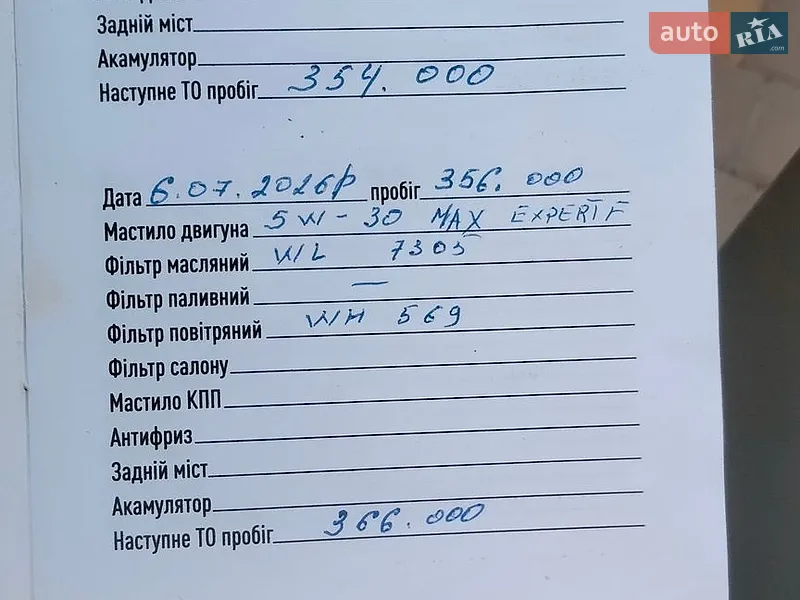 auto RIA .com
Задній міст
Акамулятор
Наступне ТО пробіг 354.000
Дата 6.07.2026р пробіг 356.000
Мастило двигуна 5W-30 MAX EXPERT F
Фільтр масляний WL 7305
Фільтр паливний —
Фільтр повітряний WH 569
Фільтр салону
Мастило КПП
Антифриз
Задній міст
Акамулятор
Наступне ТО пробіг 366.000